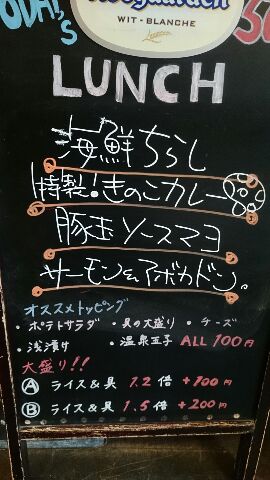 Hoegaarden
WIT-BLANCHE
LUNCH
海鮮ちらし
特製!きのこカレー
豚玉ソースマヨ
サーモン&アボカドン。
オススメトッピング
・ポテトサラダ ・具の大盛り ・チーズ
・浅漬け ・温泉玉子 ALL 100円
大盛り!!
Ⓐ ライス&具 1.2倍 +100円
Ⓑ ライス&具 1.5倍 +200円